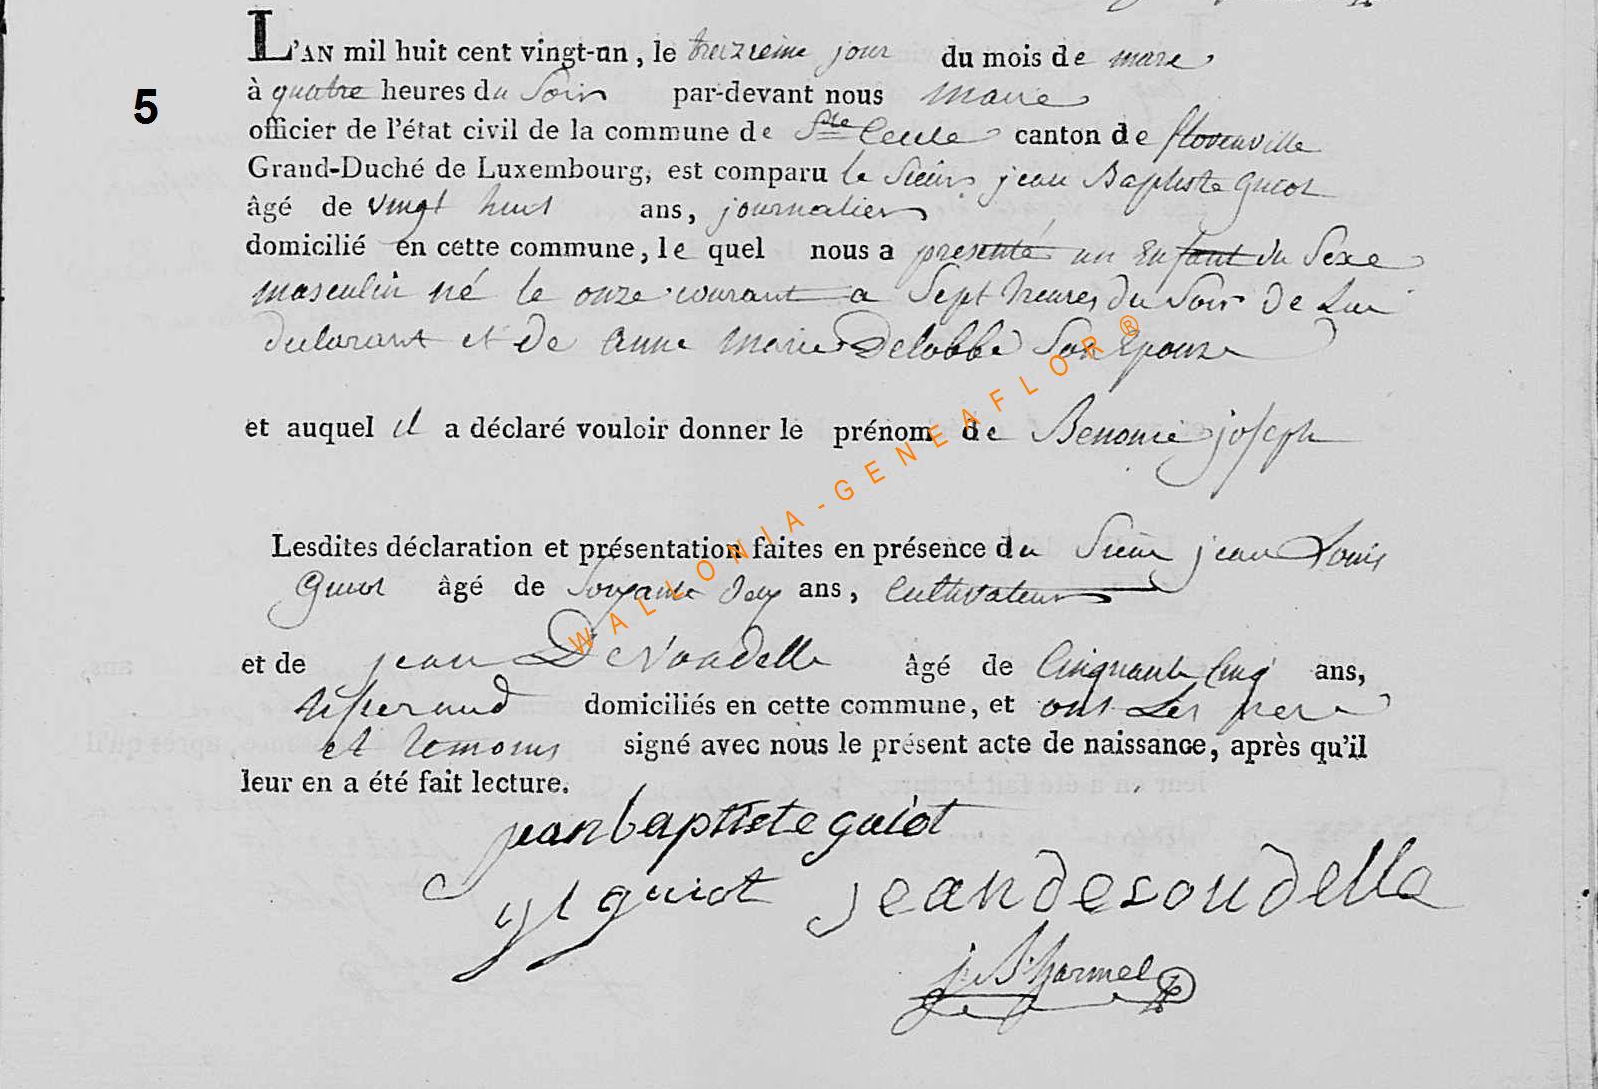 L'AN mil huit cent vingt-un, le treizieme jour du mois de mars
5
à quatre heures du Soir par-devant nous Maire
officier de l'état civil de la commune de Ste Cecile canton de florenville
Grand-Duché de Luxembourg, est comparu le Sieur jean Baptiste Guiot
âgé de vingt huit ans, journalier
domicilié en cette commune, le quel nous a presenté un Enfant du Sexe
masculin né le onze courant a Sept heures du Soir de Lui
declarant et de anne Marie Delobbe Son Epouse
et auquel il a déclaré vouloir donner le prénom de Benonie joseph
Lesdites déclaration et présentation faites en présence du Sieur jean Louis
Guiot âgé de Soixante deux ans, Cultivateur
et de jean âgé de Cinquante Cinq ans,
domiciliés en cette commune, et ont Les pere
et temoins signé avec nous le présent acte de naissance, après qu'il
leur en a été fait lecture.
jean baptiste guiot
jl guiot jean desoudelle
j. B. harmel
WALLONIA-GENEAFLOR ®